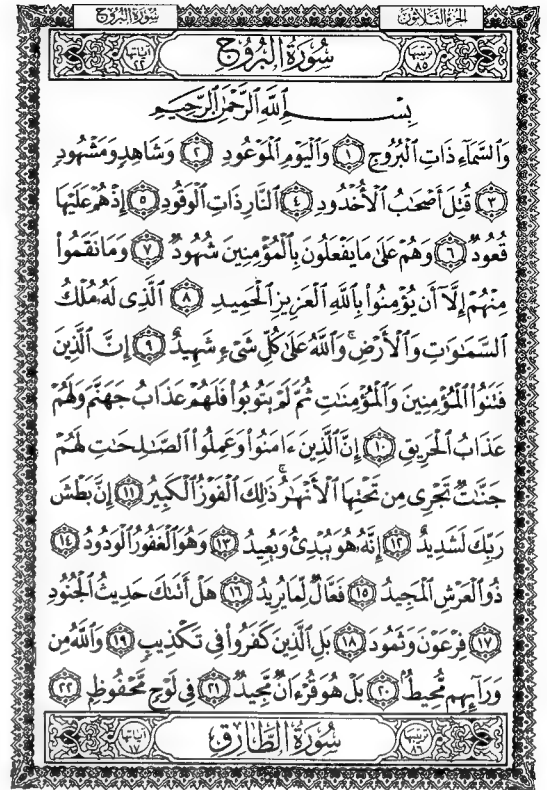 سُورَةُ البُرُوج الجزء الثلاثون
آياتها ٢٢ سُورَةُ الْبُرُوجِ ترتيبها ٨٥
بِسْمِ ٱللَّهِ ٱلرَّحْمَٰنِ ٱلرَّحِيمِ
وَٱلسَّمَآءِ ذَاتِ ٱلْبُرُوجِ ١ وَٱلْيَوْمِ ٱلْمَوْعُودِ ٢ وَشَاهِدٍ وَمَشْهُودٍ
٣ قُتِلَ أَصْحَٰبُ ٱلْأُخْدُودِ ٤ ٱلنَّارِ ذَاتِ ٱلْوَقُودِ ٥ إِذْ هُمْ عَلَيْهَا
قُعُودٌ ٦ وَهُمْ عَلَىٰ مَا يَفْعَلُونَ بِٱلْمُؤْمِنِينَ شُهُودٌ ٧ وَمَا نَقَمُوا۟
مِنْهُمْ إِلَّآ أَن يُؤْمِنُوا۟ بِٱللَّهِ ٱلْعَزِيزِ ٱلْحَمِيدِ ٨ ٱلَّذِى لَهُۥ مُلْكُ
ٱلسَّمَٰوَٰتِ وَٱلْأَرْضِ ۚ وَٱللَّهُ عَلَىٰ كُلِّ شَىْءٍ شَهِيدٌ ٩ إِنَّ ٱلَّذِينَ
فَتَنُوا۟ ٱلْمُؤْمِنِينَ وَٱلْمُؤْمِنَٰتِ ثُمَّ لَمْ يَتُوبُوا۟ فَلَهُمْ عَذَابُ جَهَنَّمَ وَلَهُمْ
عَذَابُ ٱلْحَرِيقِ ١٠ إِنَّ ٱلَّذِينَ ءَامَنُوا۟ وَعَمِلُوا۟ ٱلصَّٰلِحَٰتِ لَهُمْ
جَنَّٰتٌ تَجْرِى مِن تَحْتِهَا ٱلْأَنْهَٰرُ ۚ ذَٰلِكَ ٱلْفَوْزُ ٱلْكَبِيرُ ١١ إِنَّ بَطْشَ
رَبِّكَ لَشَدِيدٌ ١٢ إِنَّهُۥ هُوَ يُبْدِئُ وَيُعِيدُ ١٣ وَهُوَ ٱلْغَفُورُ ٱلْوَدُودُ ١٤
ذُو ٱلْعَرْشِ ٱلْمَجِيدُ ١٥ فَعَّالٌ لِّمَا يُرِيدُ ١٦ هَلْ أَتَىٰكَ حَدِيثُ ٱلْجُنُودِ
١٧ فِرْعَوْنَ وَثَمُودَ ١٨ بَلِ ٱلَّذِينَ كَفَرُوا۟ فِى تَكْذِيبٍ ١٩ وَٱللَّهُ مِن
وَرَآئِهِم مُّحِيطٌۢ ٢٠ بَلْ هُوَ قُرْءَانٌ مَّجِيدٌ ٢١ فِى لَوْحٍ مَّحْفُوظٍۭ ٢٢
آياتها ١٧ سُورَةُ الطَّارِقِ ترتيبها ٨٦